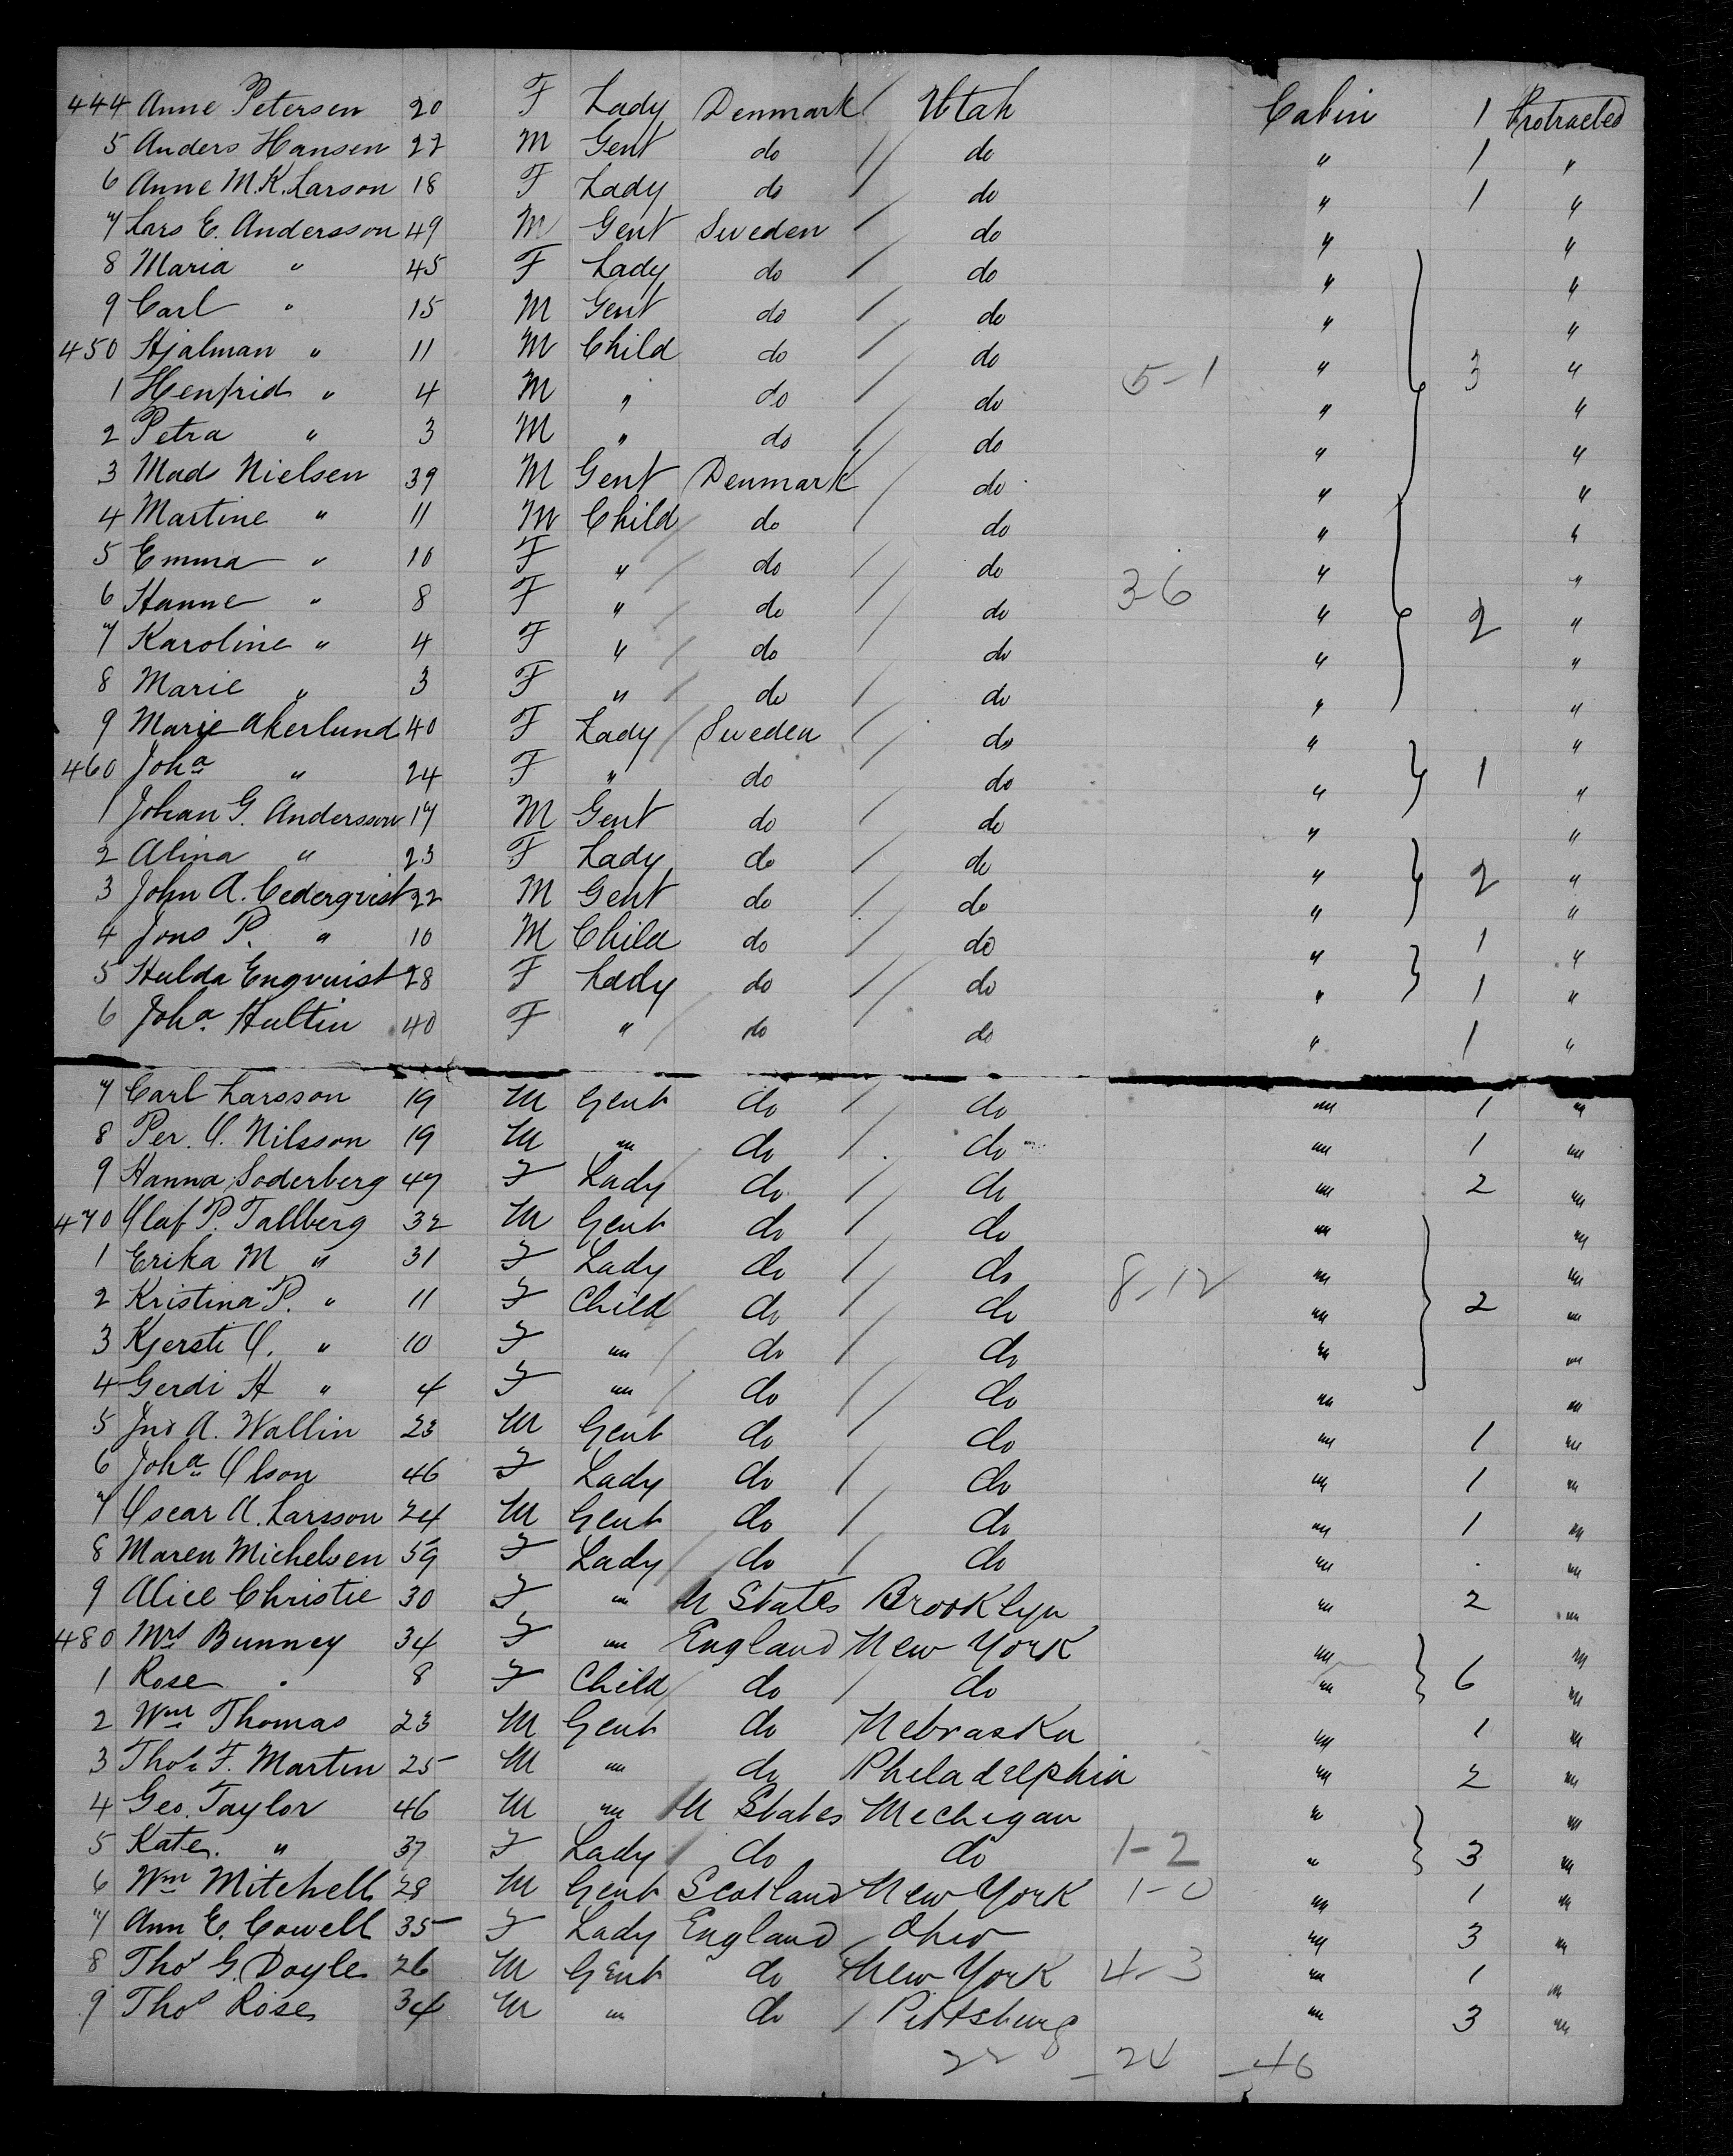 444 Anne Petersen 20 F Lady Denmark / Utah Cabin 1 Protracted
5 Anders Hansen 27 M Gent do / do " 1 "
6 Anne M.K. Larson 18 F Lady do / do " 1 "
7 Lars E. Andersson 49 M Gent Sweden / do " "
8 Maria " 45 F Lady do / do " "
9 Carl " 15 M Gent do / do " "
450 Hjalman " 11 M Child do / do 5-1 " 3 "
1 Henfrid " 4 M " do / do " "
2 Petra " 3 M " do / do " "
3 Mads Nielsen 39 M Gent Denmark / do " "
4 Martine " 11 M Child do / do " "
5 Emma " 10 F " do / do " "
6 Hanne " 8 F " do / do 3-6 " 2 "
7 Karoline " 4 F " do do " "
8 Marie " 3 F " do / do " "
9 Marie Akerlund 40 F Lady Sweden / do " "
460 Joha " 24 F " do do " 1 "
1 Johan G. Andersson 17 M Gent do / do " "
2 Alina " 23 F Lady do / do " 2 "
3 John A. Cederqvist 22 M Gent do / do " "
4 Jons P. " 10 M Child do / do " 1 "
5 Hulda Engvuist 28 F Lady do / do " 1 "
6 Joha. Hultin 40 F " do do " 1 "
7 Carl Larsson 19 M Gent do / do " 1 "
8 Per. O. Nilsson 19 M " do / do " 1 "
9 Hanna Soderberg 47 F Lady do / do " 2 "
470 Olaf P. Tallberg 32 M Gent do / do " "
1 Erika M " 31 F Lady do / do " "
2 Kristina P. " 11 F Child do / do 8-12 " 2 "
3 Kjersti O. " 10 F " do / do " "
4 Gerdi H " 4 F " do / do " "
5 Jno A. Wallin 23 M Gent do / do " 1 "
6 Joha Olson 46 F Lady do / do " 1 "
7 Oscar A. Larsson 24 M Gent do / do " 1 "
8 Maren Michelsen 59 F Lady do / do " "
9 Alice Christie 30 F " U States Brooklyn " 2 "
480 Mrs Bunney 34 F " England New York " "
1 Rose " 8 F Child do / do " 6 "
2 Wm Thomas 23 M Gent do Nebraska " 1 "
3 Thos F. Martin 25 M " do Philadelphia " 2 "
4 Geo. Taylor 46 M " U States Mechigan " "
5 Kate. " 37 F Lady do do 1-2 " 3 "
6 Wm Mitchell 28 M Gent Scotland New York 1-0 " 1 "
7 Ann E. Cowell 35 F Lady England Ohio " 3 "
8 Thos G. Doyle 26 M Gent do New York 4-3 " 1 "
9 Thos Rose 34 M " do / Pittsburg " 3 "
22 - 24 - 46